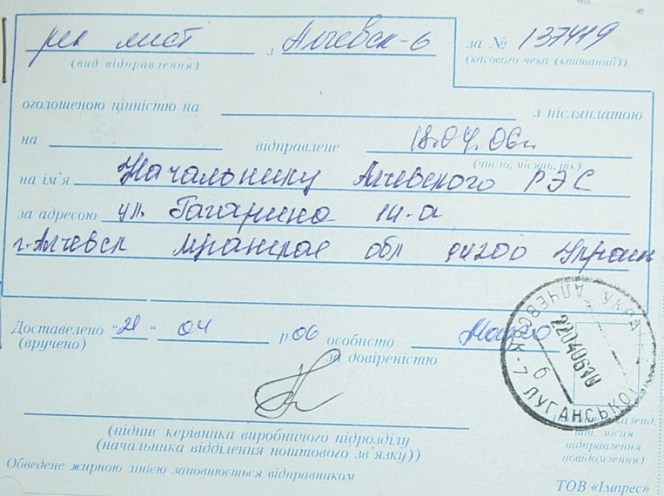 рек лист з Алчевск-6 за № 137419
(вид відправлення) (касового чека (квитанції))
оголошеною цінністю на з післяплатою
на відправлене 18.04.06г.
(число, місяць, рік)
на ім'я Начальнику Алчевского РЭС
за адресою ул. Гагарина
г. Алчевск Луганская обл 94200 Украин
Доставлено "21" 04 р 06 особисто
(вручено) за довіреністю
(підпис керівника виробничого підрозділу
(начальника відділення поштового зв'язку))
Обведене жирною лінією заповнюється відправником
відправлення
повідомлення)
ТОВ «Імпрес»
АЛЧЕВСЬК-7 ЛУГАНСЬКОЇ